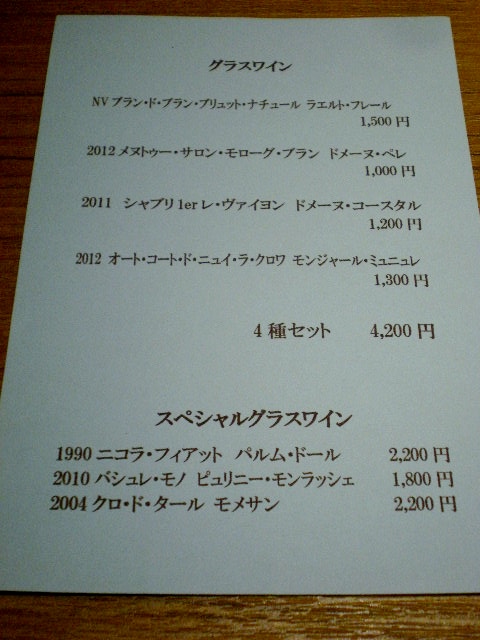 グラスワイン
NV ブラン・ド・ブラン・ブリュット・ナチュール ラエルト・フレール
1,500 円
2012 メヌトゥー・サロン・モローグ・ブラン ドメーヌ・ペレ
1,000 円
2011 シャブリ 1er レ・ヴァイヨン ドメーヌ・コースタル
1,200 円
2012 オート・コート・ド・ニュイ・ラ・クロワ モンジャール・ミュニュレ
1,300 円
4 種セット 4,200 円
スペシャルグラスワイン
1990 ニコラ・フィアット パルム・ドール 2,200 円
2010 バシュレ・モノ ピュリニー・モンラッシェ 1,800 円
2004 クロ・ド・タール モメサン 2,200 円